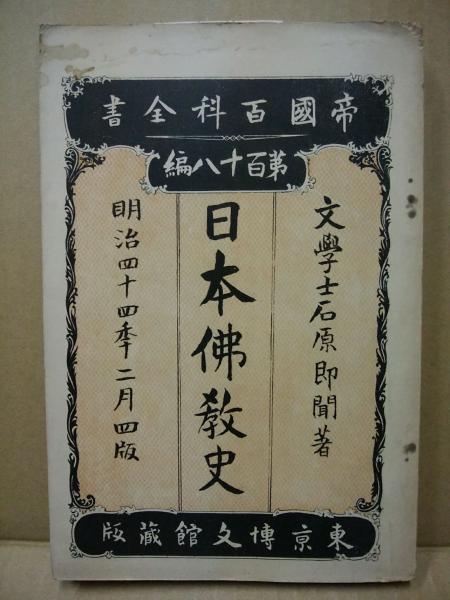 帝國百科全書
第百十八編
文學士石原即聞著
日本佛教史
明治四十四季二月四版
東京博文館藏版